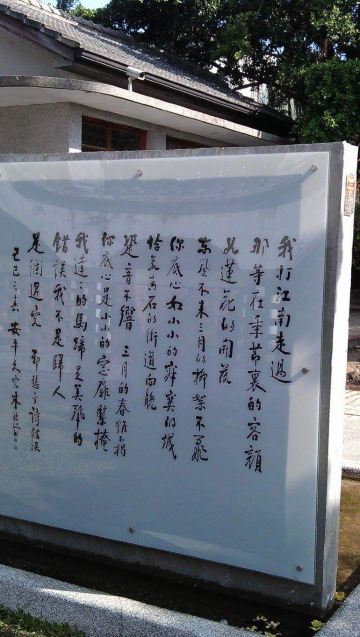 我打江南走過
那等在季節裏的容顏
如蓮花的開落
東風不來三月的柳絮不飛
你底心如小小的寂寞的城
恰若青石的街道向晚
跫音不響 三月的春帷不揭
你底心是小小的窗扉緊掩
我達達的馬蹄是美麗的
錯誤我不是歸人
是個過客 鄭愁予詩錯誤